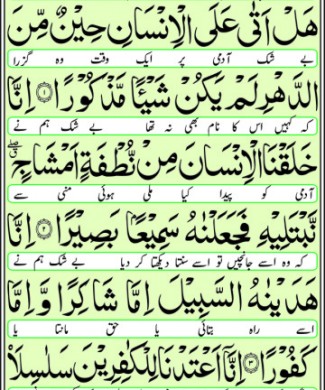 هَلْ اَتٰى عَلَى الْاِنْسَانِ حِيْنٌ مِّنَ
بے شک آدمی پر ایک وقت وہ گزرا
الدَّهْرِ لَمْ يَكُنْ شَيْـًٔا مَّذْكُوْرًا ۝۱ اِنَّا
کہ کہیں اس کا نام بھی نہ تھا بے شک ہم نے
خَلَقْنَا الْاِنْسَانَ مِنْ نُّطْفَةٍ اَمْشَاجٍ ۖ
آدمی کو پیدا کیا ملی ہوئی منی سے
نَّبْتَلِيْهِ فَجَعَلْنٰهُ سَمِيْعًۢا بَصِيْرًا ۝۲ اِنَّا
کہ وہ اسے جانچیں تو اسے سنتا دیکھتا کر دیا بے شک ہم نے
هَدَيْنٰهُ السَّبِيْلَ اِمَّا شَاكِرًا وَّ اِمَّا
اسے راہ بتائی یا حق مانتا یا
كَفُوْرًا ۝۳ اِنَّاۤ اَعْتَدْنَا لِلْكٰفِرِيْنَ سَلٰسِلَاۡ